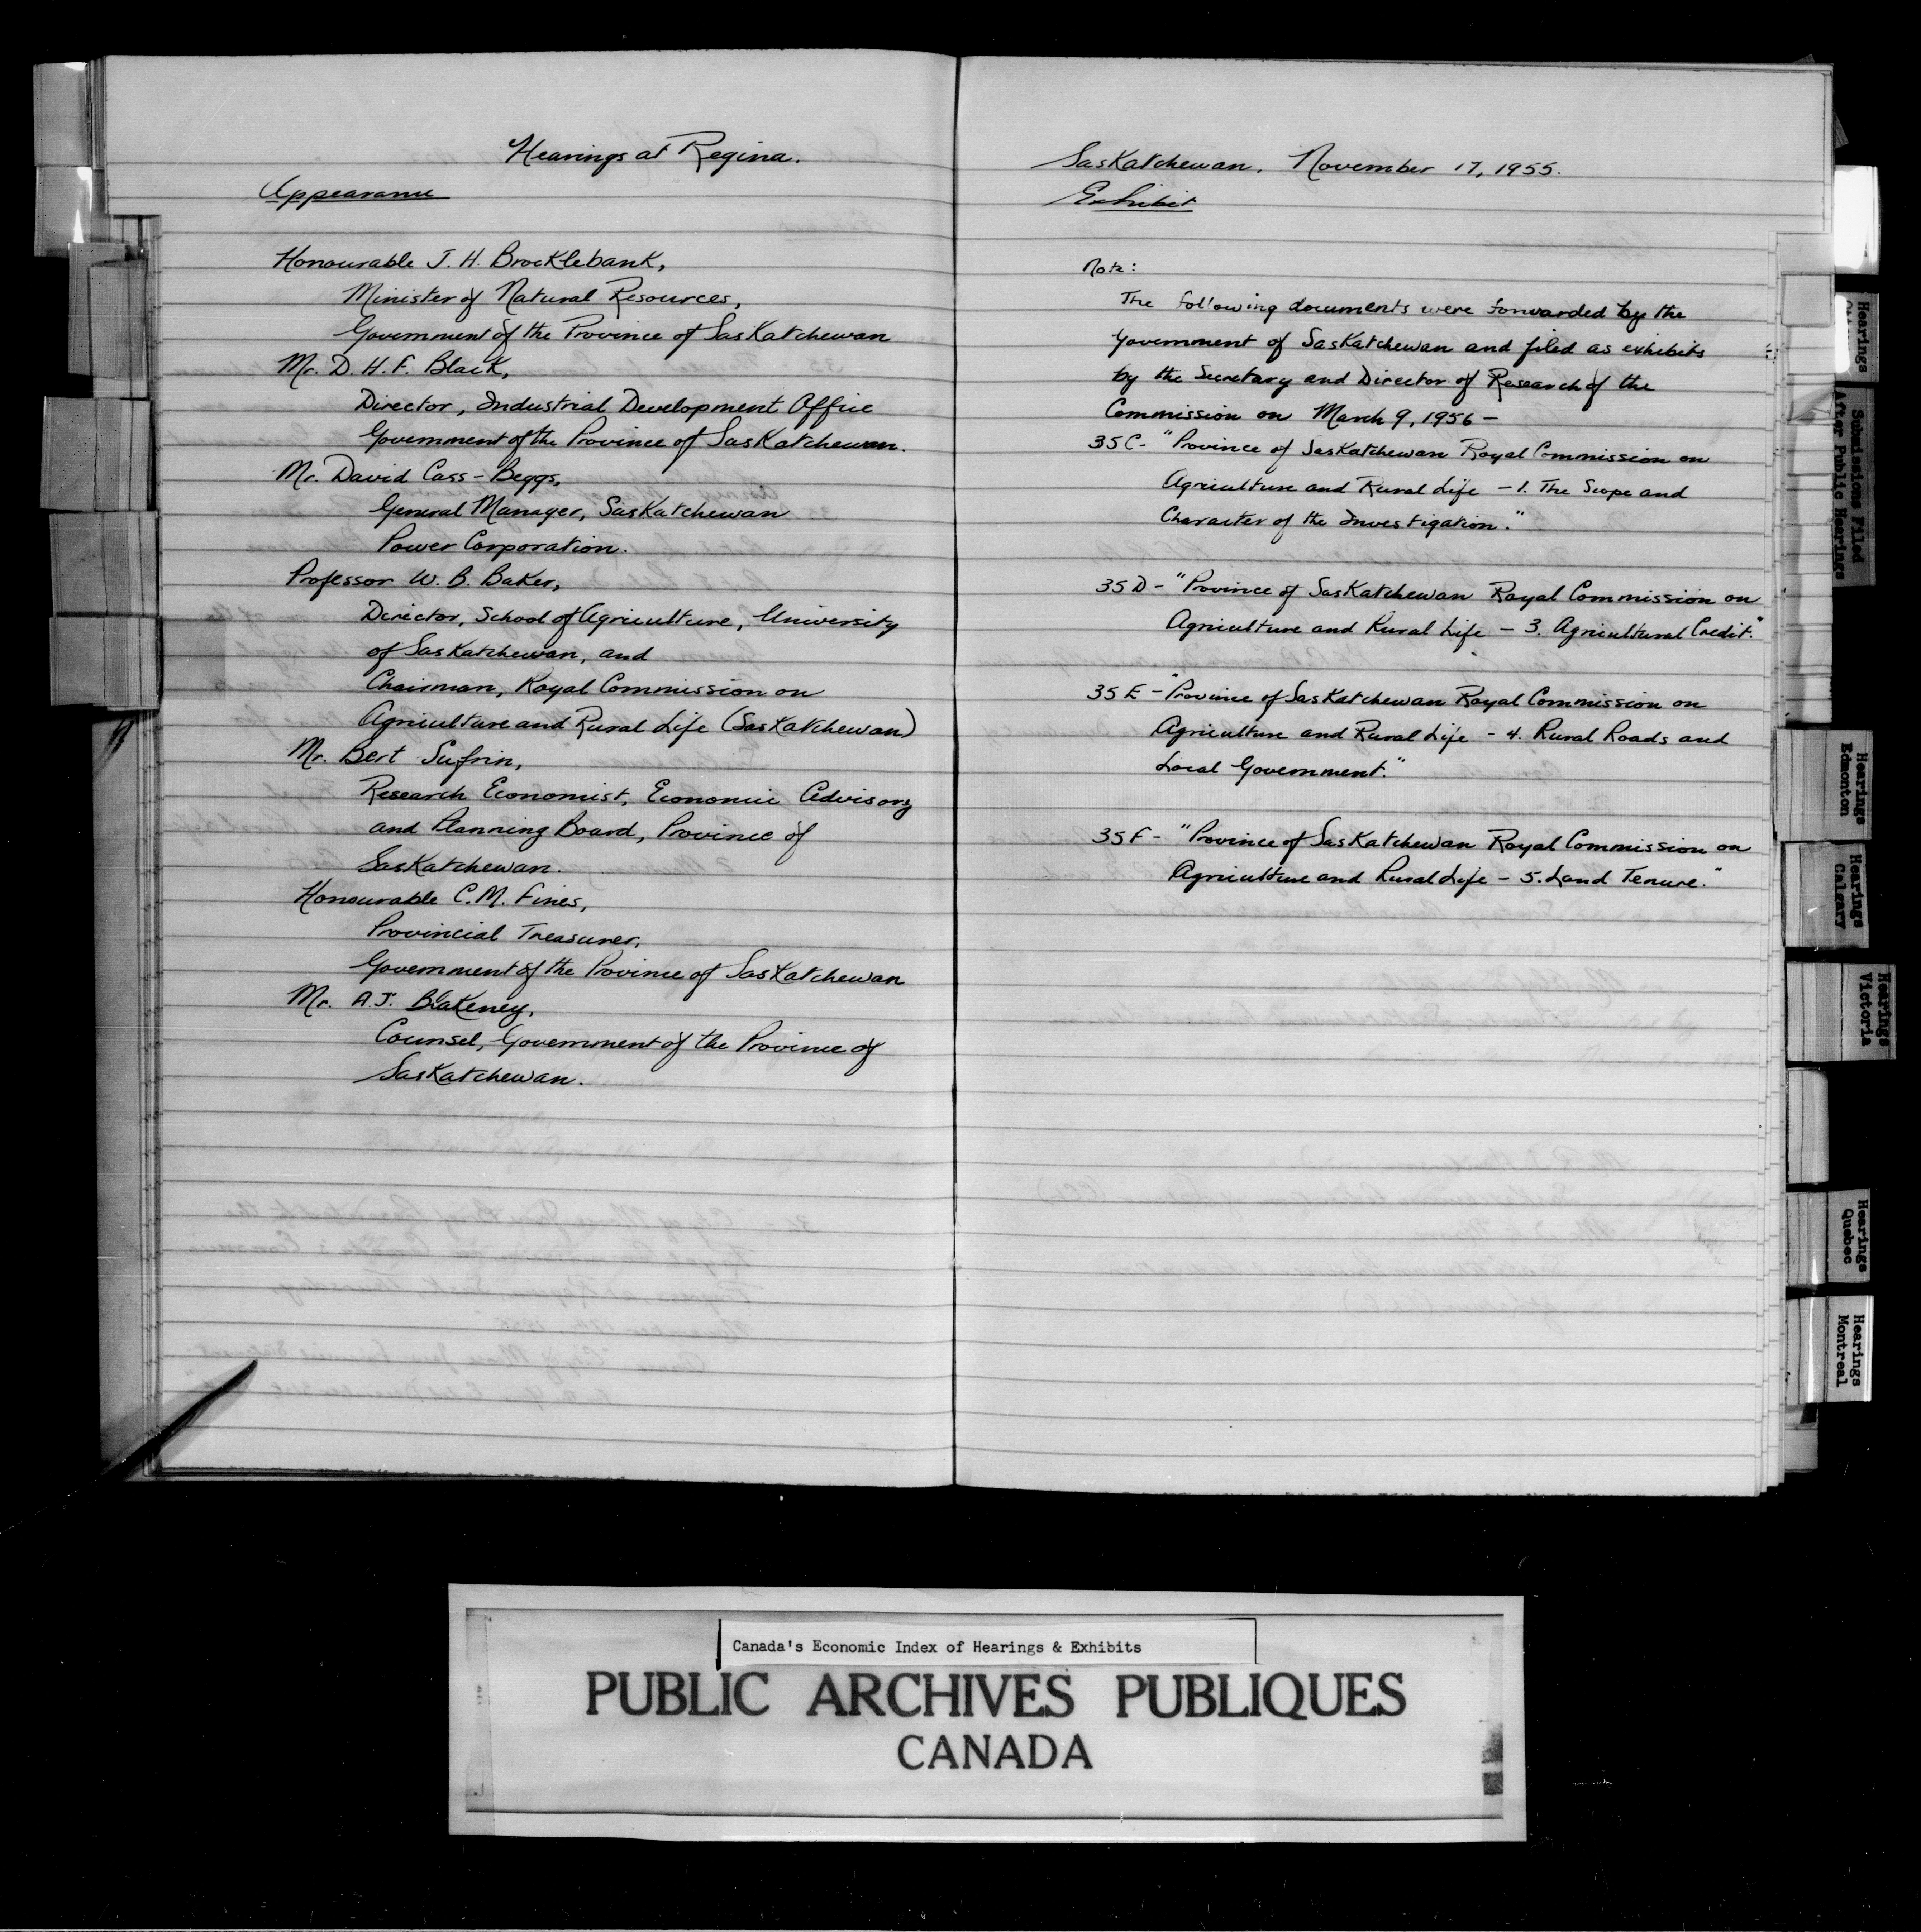 Hearings at Regina.
Appearance
Honourable J. H. Brocklebank,
Minister of Natural Resources,
Government of the Province of Saskatchewan
Mr. D. H. F. Black,
Director, Industrial Development Office
Government of the Province of Saskatchewan.
Mr. David Cass-Beggs,
General Manager, Saskatchewan
Power Corporation.
Professor W. B. Baker,
Director, School of Agriculture, University
of Saskatchewan, and
Chairman, Royal Commission on
Agriculture and Rural Life (Saskatchewan)
Mr. Bert Sufrin,
Research Economist, Economic Advisory
and Planning Board, Province of
Saskatchewan.
Honourable C. M. Fines,
Provincial Treasurer,
Government of the Province of Saskatchewan
Mr. A. J. Blakeney,
Counsel, Government of the Province of
Saskatchewan.
Saskatchewan. November 17, 1955.
Exhibit
Note:
The following documents were forwarded by the
Government of Saskatchewan and filed as exhibits
by the Secretary and Director of Research of the
Commission on March 9, 1956 -
35C - "Province of Saskatchewan Royal Commission on
Agriculture and Rural Life - 1. The Scope and
Character of the Investigation."
35D - "Province of Saskatchewan Royal Commission on
Agriculture and Rural Life - 3. Agricultural Credit."
35E - "Province of Saskatchewan Royal Commission on
Agriculture and Rural Life - 4. Rural Roads and
Local Government."
35F - "Province of Saskatchewan Royal Commission on
Agriculture and Rural Life - 5. Land Tenure."
Hearings
Submissions Filed
After Public Hearings
Hearings
Edmonton
Hearings
Calgary
Hearings
Victoria
Hearings
Quebec
Hearings
Montreal
Canada's Economic Index of Hearings & Exhibits
PUBLIC ARCHIVES PUBLIQUES
CANADA